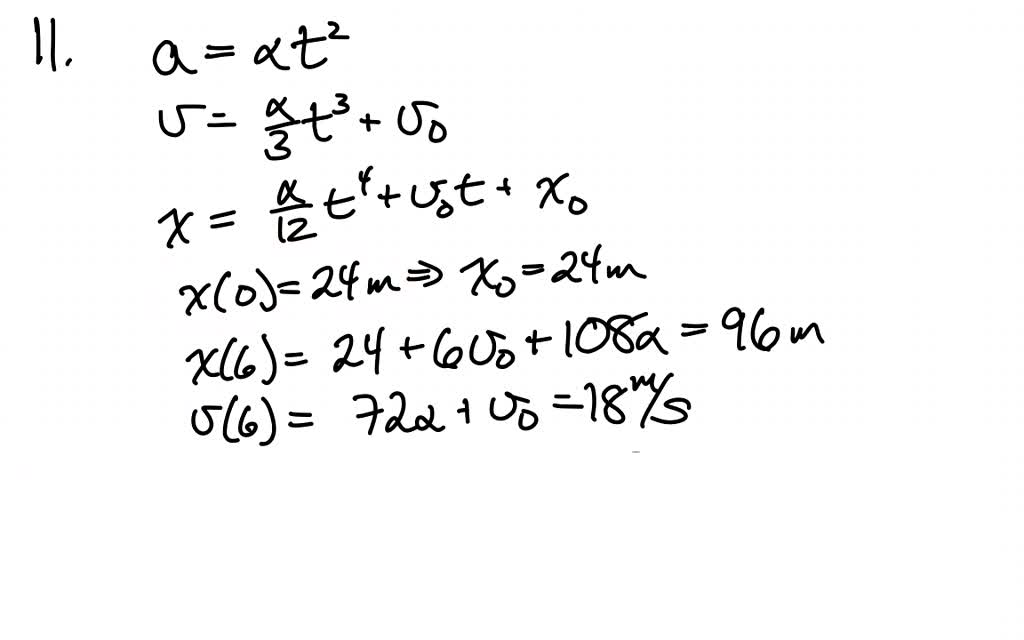 11. a = αt²
v = α/3 t³ + v₀
x = α/12 t⁴ + v₀t + x₀
x(0) = 24m ⇒ x₀ = 24m
x(6) = 24 + 6v₀ + 108α = 96m
v(6) = 72α + v₀ = 18 m/s